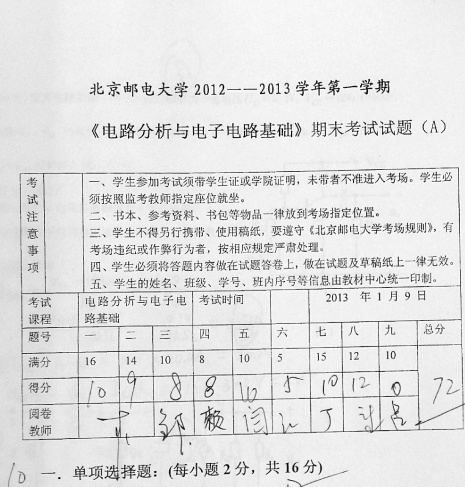 北京邮电大学 2012——2013 学年第一学期
《电路分析与电子电路基础》期末考试试题（A）
考试注意事项
一、学生参加考试须带学生证或学院证明，未带者不准进入考场。学生必
须按照监考教师指定座位就坐。
二、书本、参考资料、书包等物品一律放到考场指定位置。
三、学生不得另行携带、使用稿纸，要遵守《北京邮电大学考场规则》，有
考场违纪或作弊行为者，按相应规定严肃处理。
四、学生必须将答题内容做在试题答卷上，做在试题及草稿纸上一律无效。
五、学生的姓名、班级、学号、班内序号等信息由教材中心统一印制。
考试课程 电路分析与电子电路基础 考试时间 2013 年 1 月 9 日
题号 一 二 三 四 五 六 七 八 九 总分
满分 16 14 10 8 10 5 15 12 10
得分 10 9 8 8 10 5 10 12 0 72
阅卷教师 邹 赖 闫 丁
10 一．单项选择题：(每小题 2 分，共 16 分)